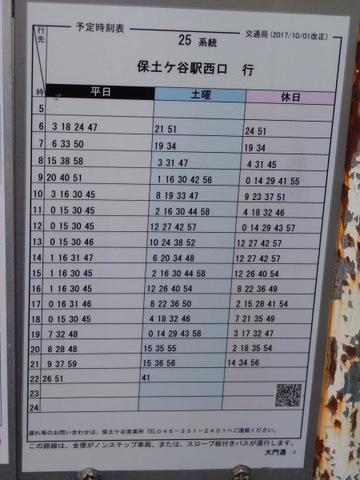 予定時刻表
25 系統
交通局(2017/10/01改正)
行先
保土ケ谷駅西口 行
時 平日 土曜 休日
5
6 3 18 24 47 21 51 24 51
7 6 33 50 19 34 19 34
8 15 38 58 3 31 47 4 31 45
9 20 40 51 1 16 30 42 56 0 14 29 41 55
10 3 16 30 45 8 19 33 47 9 23 37 51
11 0 15 30 45 2 16 30 44 58 4 18 32 46
12 0 15 30 45 12 27 42 57 0 14 29 43 57
13 0 15 30 46 10 24 38 52 12 27 42 57
14 1 16 31 47 6 20 34 48 12 27 42 57
15 1 16 30 45 2 16 30 44 58 12 26 40 54
16 1 16 30 45 12 26 40 54 8 22 36 49
17 0 16 31 46 8 22 36 50 2 15 28 41 54
18 1 15 30 45 4 18 32 46 7 21 35 49
19 7 32 48 0 14 29 43 58 3 17 32 47
20 8 28 48 15 35 55 2 18 35 54
21 9 37 59 15 36 56 14 34 56
22 26 51 41
23
24
遅れ等のお問い合わせは、保土ケ谷営業所 TEL045-331-2401へご連絡ください。
この路線は、全便がノンステップ車両、または、スロープ板付きバスが運行します。
大門通